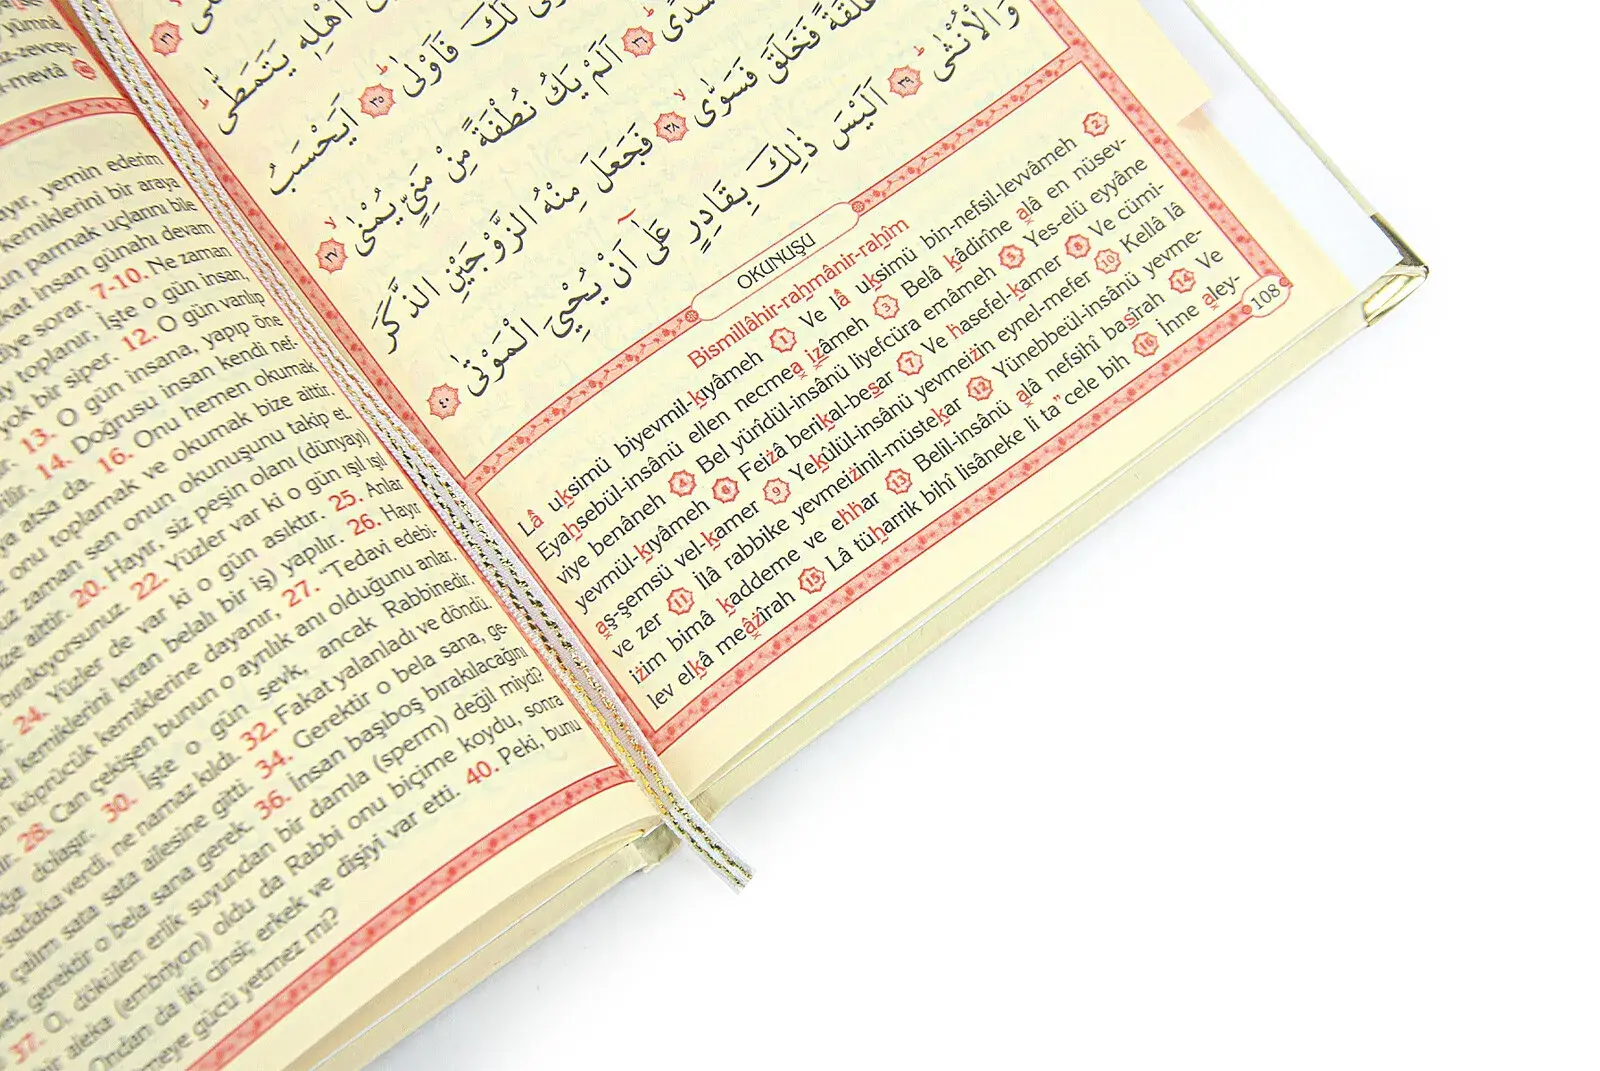 yümnâ
z-zevcey-
l-mevtâ
yemin ederim
kemiklerini bir araya
parmak uçlarını bile
insan günahı devam
diye sorar. 7-10. Ne zaman
toplanır, İşte o gün insan,
yok bir siper. 12. O gün varılıp
13. O gün insana, yapıp öne
14. Doğrusu insan kendi nef-
atsa da. 16. Onu hemen okumak
onu toplamak ve okumak bize aittir.
zaman sen onun okunuşunu takip et.
aittir. 20. Hayır, siz peşin olanı (dünyayı)
bırakıyorsunuz. 22. Yüzler var ki o gün ışıl ışıl
24. Yüzler de var ki o gün asıktır. 25. Anlar
kemiklerini kıran belalı bir iş) yapılır. 26. Hayır
köprücük kemiklerine dayanır, 27. "Tedavi edebi-
28. Can çekişen bunun o ayrılık anı olduğunu anlar.
dolaşır. 30. İşte o gün sevk, ancak Rabbinedir.
sadaka verdi, ne namaz kıldı. 32. Fakat yalanladı ve döndü.
çalım sata sata ailesine gitti. 34. Gerektir o bela sana, ge-
gerektir o bela sana gerek. 36. İnsan başıboş bırakılacağını
37. O, dökülen erlik suyundan bir damla (sperm) değil miydi?
bir aleka (embriyon) oldu da Rabbi onu biçime koydu, sonra
Ondan da iki cinsi; erkek ve dişiyi var etti. 40. Peki, bunu
meye gücü yetmez mi?
﴿٣١﴾
اَهْلِهٖ يَتَمَطّٰى
لَكَ فَاَوْلٰى ﴿٣٥﴾ اَيَحْسَبُ
سُدًى ﴿٣٦﴾ اَلَمْ يَكُ نُطْفَةً مِنْ مَنِيٍّ يُمْنٰى ﴿٣٧﴾
عَلَقَةً فَخَلَقَ فَسَوّٰى ﴿٣٨﴾ فَجَعَلَ مِنْهُ الزَّوْجَيْنِ الذَّكَرَ
وَالْاُنْثٰى ﴿٣٩﴾ اَلَيْسَ ذٰلِكَ بِقَادِرٍ عَلٰٓى اَنْ يُحْيِيَ الْمَوْتٰى ﴿٤٠﴾
OKUNUŞU
Bismillâhir-rahmânir-rahîm
Lâ uksimü biyevmil-kıyâmeh 1 Ve lâ uksimü bin-nefsil-levvâmeh 2
Eyahsebül-insânü ellen necmea izâmeh 3 Belâ kâdirîne alâ en nüsev-
viye benâneh 4 Bel yürîdül-insânü liyefcüra emâmeh 5 Yes-elü eyyâne
yevmül-kıyâmeh 6 Feizâ berikal-besar 7 Ve hasefel-kamer 8 Ve cümi-
aş-şemsü vel-kamer 9 Yekûlül-insânü yevmeizin eynel-mefer 10 Kellâ lâ
ve zer 11 İlâ rabbike yevmeizinil-müstekar 12 Yünebbeül-insânü yevme-
izim bimâ kaddeme ve ehhar 13 Belil-insânü alâ nefsihî basîrah 14 Ve
lev elkâ meâzîrah 15 Lâ tüharrik bihî lisâneke li ta"cele bih 16 İnne aley-
108